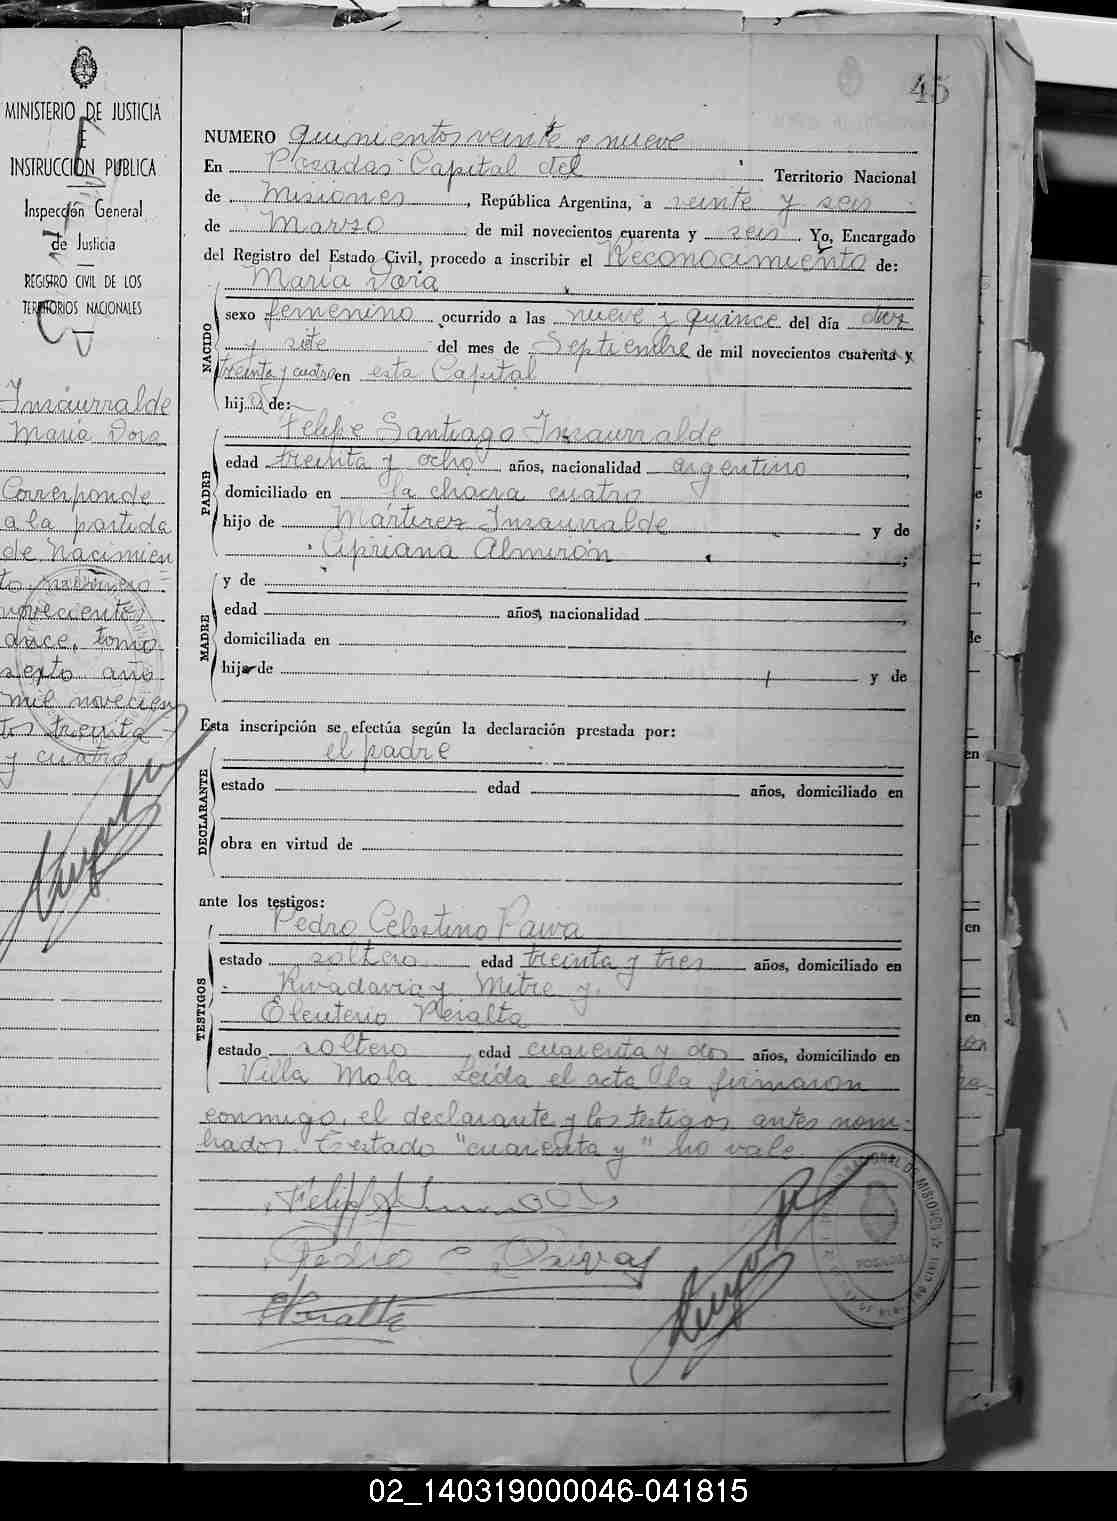 45
MINISTERIO DE JUSTICIA
E
INSTRUCCION PUBLICA
Inspección General
de Justicia
REGISTRO CIVIL DE LOS
TERRITORIOS NACIONALES
Insaurralde
María Dora
Corresponde
a la partida
de nacimien
to número
novecientos
once, tomo
sexto año
mil novecien
tos treinta
y cuatro
NUMERO quinientos veinte y nueve
En Posadas Capital del Territorio Nacional
de Misiones, República Argentina, a veinte y seis
de Marzo de mil novecientos cuarenta y seis. Yo, Encargado
del Registro del Estado Civil, procedo a inscribir el Reconocimiento de:
María Dora
NACIDO
sexo femenino ocurrido a las nueve y quince del día diez
y siete del mes de Septiembre de mil novecientos cuarenta y
treinta y cuatro en esta Capital
hija de:
Felipe Santiago Insaurralde
PADRE
edad treinta y ocho años, nacionalidad argentino
domiciliado en la chacra cuatro
hijo de Mártirez Insaurralde y de
Cipriana Almirón;
y de
MADRE
edad años, nacionalidad
domiciliada en
hija de y de
Esta inscripción se efectúa según la declaración prestada por:
el padre
DECLARANTE
estado edad años, domiciliado en
obra en virtud de
ante los testigos:
Pedro Celestino Paiva
TESTIGOS
estado soltero edad treinta y tres años, domiciliado en
Rivadavia y Mitre y
Eleuterio Peralta
estado soltero, edad cuarenta y dos años, domiciliado en
Villa Mola. Leída el acta la firmaron
conmigo, el declarante y los testigos antes nom-
brados. Testado "cuarenta y" no vale.
Pedro C Paiva
EPeralta
POSADAS
02_140319000046-041815